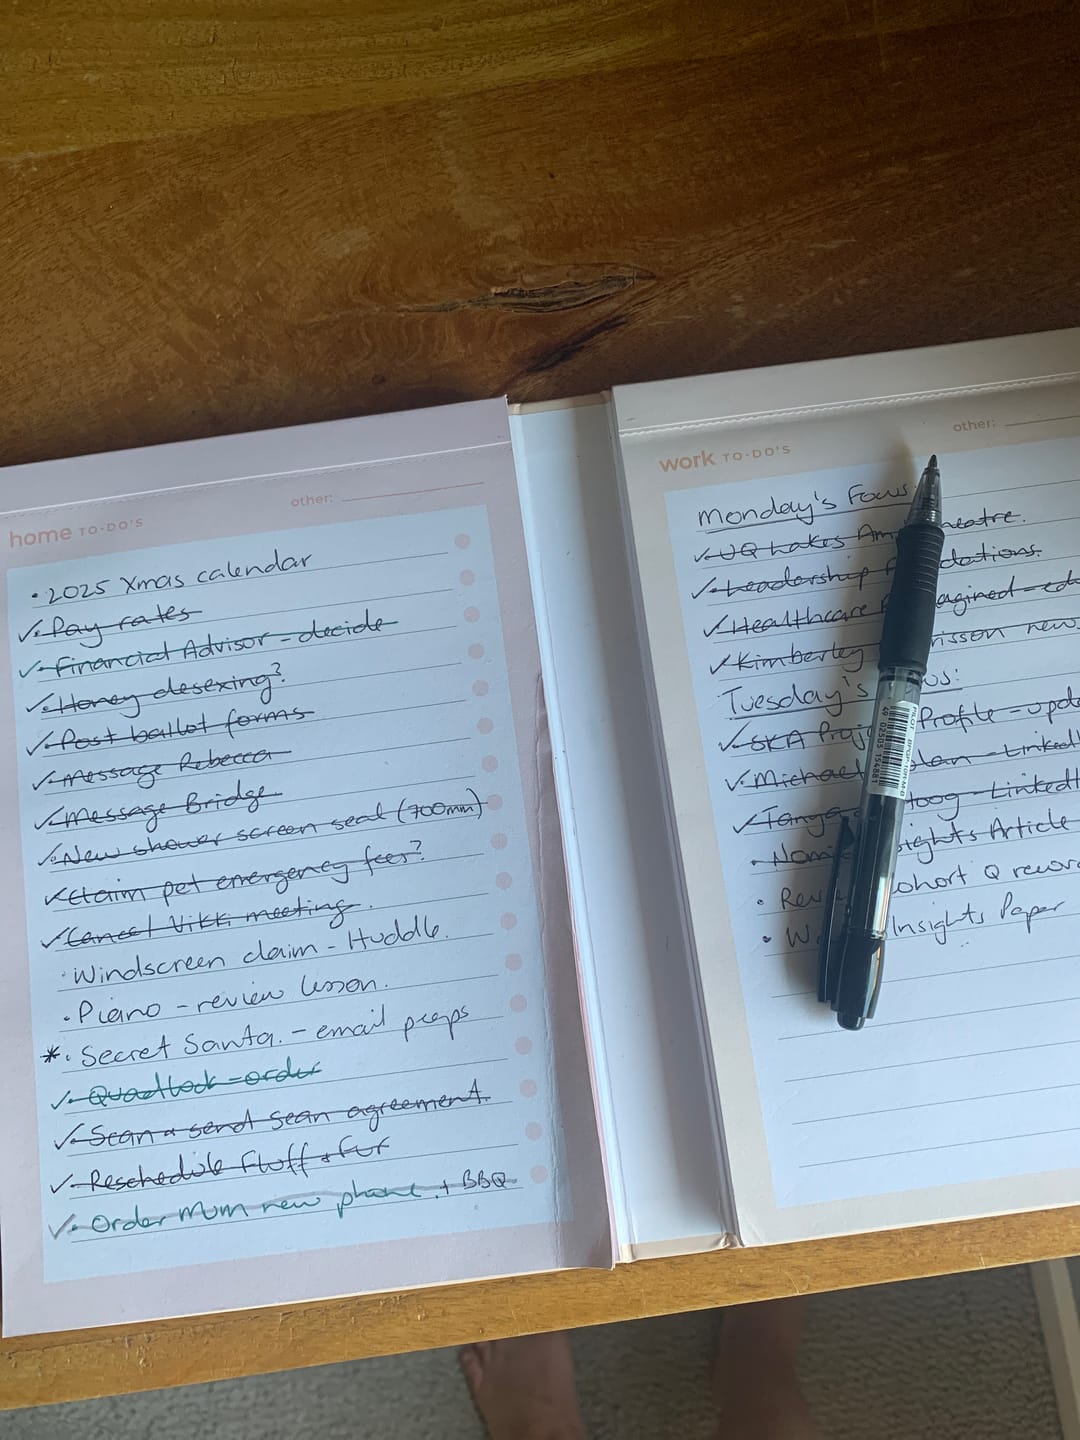 home TO-DO'S
other:
• 2025 Xmas calendar
✓• Pay rates
✓• Financial Advisor - decide
✓• Honey desexing?
✓• Post ballot forms
✓• Message Rebecca
✓• Message Bridge
✓• New shower screen seal (700mm)
✓• Claim pet emergency fees?
✓• Cancel Vikki meeting.
• Windscreen claim - Huddle.
• Piano - review lesson.
*• Secret Santa. - email peeps
✓• Quadlock - order
✓• Scan & send Sean agreement.
✓• Reschedule Fluff & Fur
✓• Order Mum new phone. + BBQ
work TO-DO'S
other:
Monday's Focus:
✓• UQ Lakes
✓• Leadership
✓• Healthcare
✓• Kimberley
Tuesday's
✓• SKA Profile - upda
✓• Michael - LinkedI
✓• - LinkedI
• Article
• Q
• Insights Paper
PILOT
02505 154881